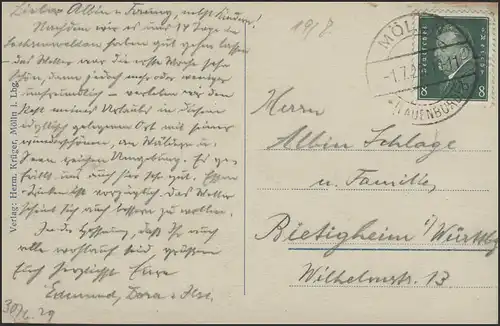 Lieber Albin u. Fanny, nebst Kinder!
Nachdem wir es uns 14 Tage in
haben gut gehen lassen
- das Wetter war die erste Woche sehr
schön, dann jedoch mehr oder weniger
unfreundlich - verleben wir den
Rest meines Urlaubs in diesem
idyllisch gelegenen Ort mit seiner
wunderschönen, an Wäldern u.
Seen reichen Umgebung. Es ge-
fällt uns auch hier sehr gut. Essen u.
Trinken ist vorzüglich. Das Wetter
scheint sich auch bessern zu wollen.
In der Hoffnung, daß Ihr auch
alle wohlauf seid grüßen
Euch herzlichst Eure
Edmund, Dora u. Ilse.
30/6.29
Verlag: Herm. Krüger, Mölln i. Lbg.
19/7
MÖLLN
1.7.2
LAUENBURG
Deutsches Reich
8 8
Herrn
Albin Schlage
u. Familie,
Bietigheim i/Württbg
Wilhelmstr. 13